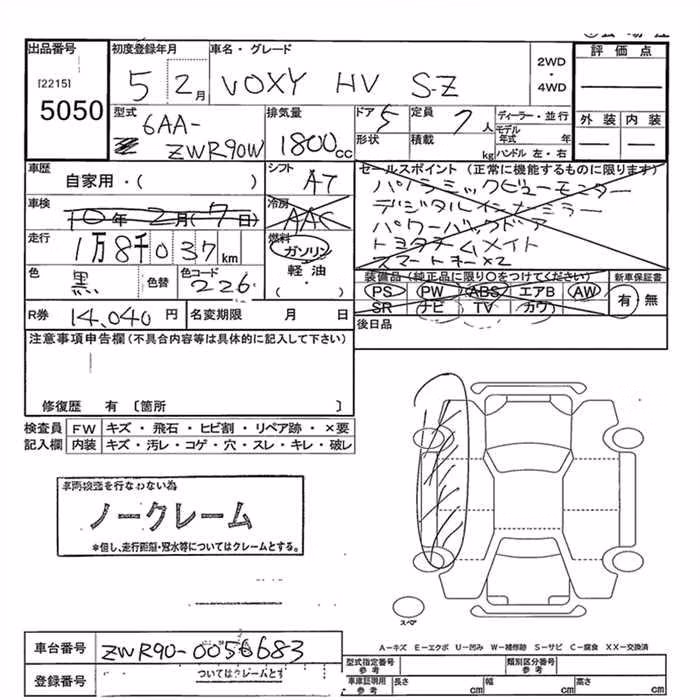 出品番号 初度登録年月 車名・グレード 2WD・4WD 評価点
[2215]
5050 5 2月 VOXY HV S-Z
型式 排気量 ドア 定員 ディーラー・並行 外装 内装
6AA-
ZWR90W 1800cc 5 7人 モデル年式 年
形状 積載 kg ハンドル 左・右
車歴 シフト セールスポイント (正常に機能するものに限ります)
自家用・( ) AT パノラミックビューモニター
車検 冷房 デジタルインナーミラー
10年2月(7日) AAC パワーバックドア
走行 燃料 トヨタチームメイト
1万8千037km ガソリン スマートキー×2
色 色替 色コード 軽油 装備品(純正品に限り○をつけてください) 新車保証書
黒 226 ・( ) PS PW ABS エアB AW 有・無
SR ナビ TV カワ
R券 14,040円 名変期限 月 日 後日品
注意事項申告欄(不具合内容等は具体的に記入して下さい)
修復歴 有 〔箇所 〕
検査員 FW キズ・飛石・ヒビ割・リペア跡・×要
記入欄 内装 キズ・汚レ・コゲ・穴・スレ・キレ・破レ
車両検査を行なわない為
ノークレーム
※但し、走行距離・冠水等についてはクレームとする。
スペア
車台番号 ZWR90-0056683
A-キズ E-エクボ U-凹み W-補修跡 S-サビ C-腐食 XX-交換済
型式指定番号 参考 類別区分番号 参考
登録番号 ついてはクレームとす
車庫証明用 参考 長さ cm 幅 cm 高さ cm